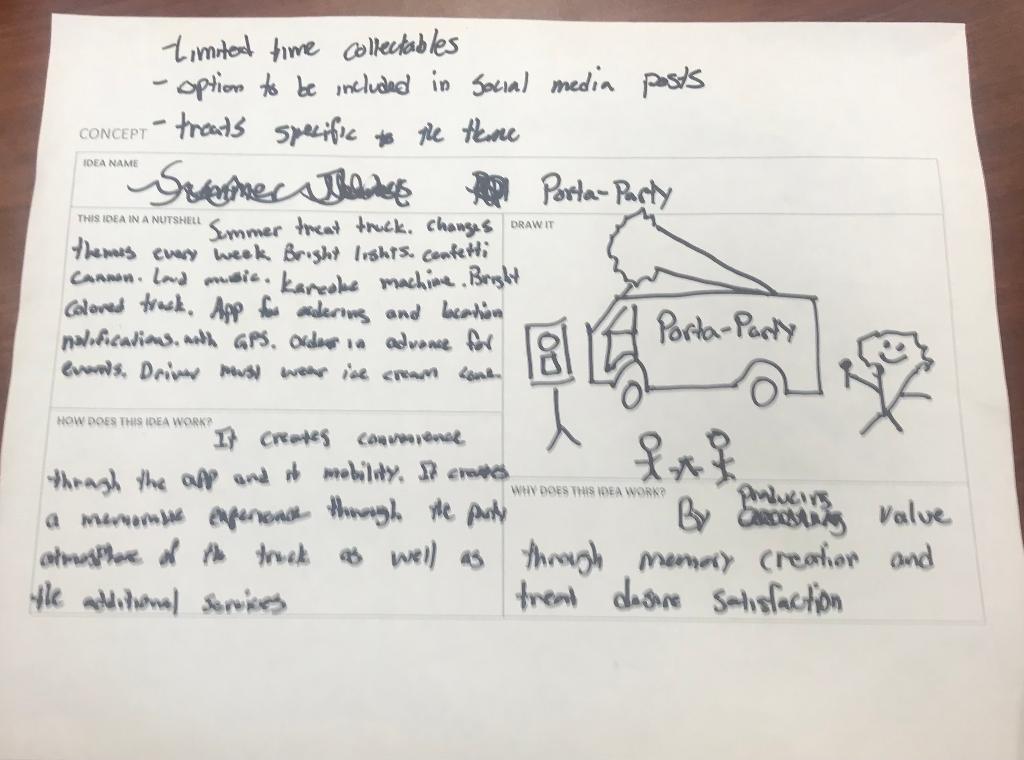 -Limited time collectables
- option to be included in social media posts
- treats specific to the theme
CONCEPT
IDEA NAME
Summer Porta-Party
THIS IDEA IN A NUTSHELL
Summer treat truck. Changes
themes every week. Bright lights. confetti
cannon. Loud music. Kareoke machine. Bright
colored truck. App for ordering and location
notifications. with GPS. Order in advance for
events. Driver must wear ice cream cone
DRAW IT
Porta-Party
HOW DOES THIS IDEA WORK?
It creates convenience
through the app and it mobility. It creates
a memorable experience through the party
atmosphere of the truck as well as
the additional services
WHY DOES THIS IDEA WORK?
By producing value
through memory creation and
treat desire satisfaction